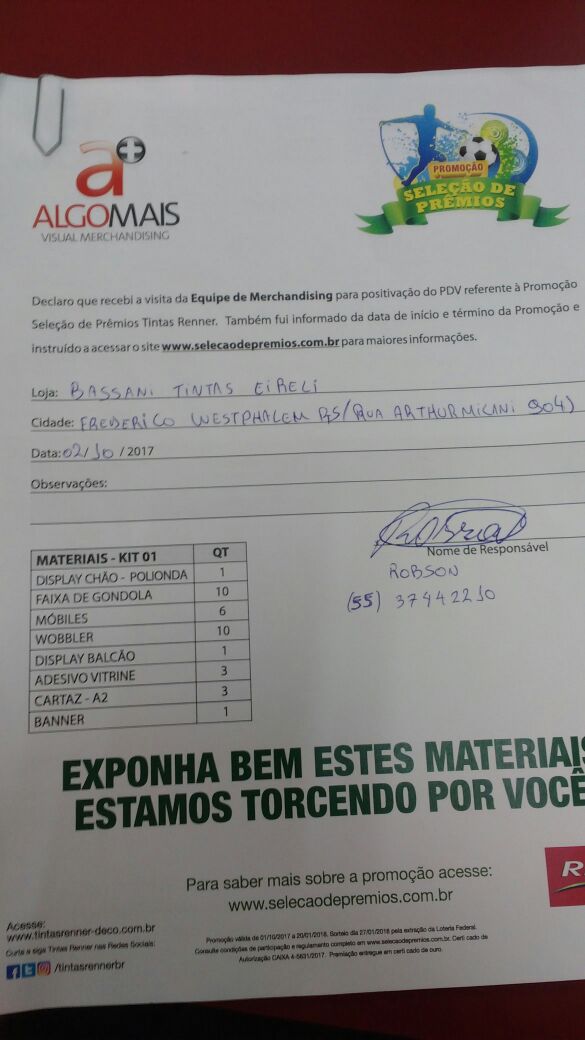 a+
ALGOMAIS
VISUAL MERCHANDISING
PROMOÇÃO
SELEÇÃO DE
PRÊMIOS
Declaro que recebi a visita da Equipe de Merchandising para positivação do PDV referente à Promoção
Seleção de Prêmios Tintas Renner. Também fui informado da data de início e término da Promoção e
instruído a acessar o site www.selecaodepremios.com.br para maiores informações.
Loja: BASSANI TINTAS EIRELI
Cidade: FREDERICO WESTPHALEM RS/(RUA ARTHUR MILANI 904)
Data: 02/10 / 2017
Observações:
Nome de Responsável
ROBSON
(55) 37442210
MATERIAIS - KIT 01 QT
DISPLAY CHÃO - POLIONDA 1
FAIXA DE GONDOLA 10
MÓBILES 6
WOBBLER 10
DISPLAY BALCÃO 1
ADESIVO VITRINE 3
CARTAZ - A2 3
BANNER 1
EXPONHA BEM ESTES MATERIAIS
ESTAMOS TORCENDO POR VOCÊ
Para saber mais sobre a promoção acesse:
www.selecaodepremios.com.br
R
Acesse:
www.tintasrenner-deco.com.br
Curta e siga Tintas Renner nas Redes Sociais:
/tintasrennerbr
Promoção válida de 01/10/2017 a 20/01/2018. Sorteio dia 27/01/2018 pela extração da Loteria Federal.
Consulte condições de participação e regulamento completo em www.selecaodepremios.com.br. Certi cado de
Autorização CAIXA 4-5631/2017. Premiação entregue em certi cado de ouro.